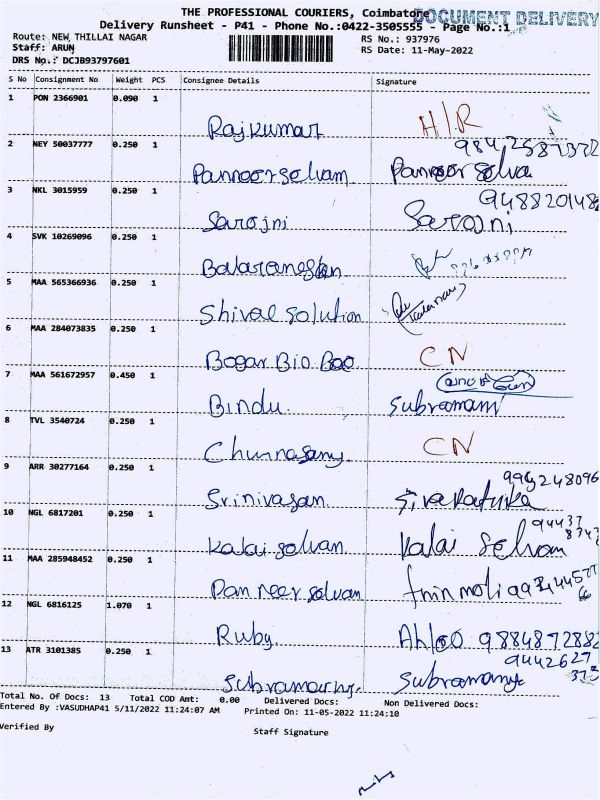 THE PROFESSIONAL COURIERS, Coimbator
DOCUMENT DELIVERY
Delivery Runsheet - P41 - Phone No.:0422-3505555 - Page No.:1
Route: NEW THILLAI NAGAR
RS No.: 937976
Staff: ARUN
RS Date: 11-May-2022
DRS No.: DCJB93797601
S No Consignment No Weight PCS Consignee Details Signature
1 PON 2366901 0.090 1
Rajkumar H/R
2 NEY 50037777 0.250 1
Panneerselvam
3 NKL 3015959 0.250 1
948820148
Sarojni Sarojni
4 SVK 10269096 0.250 1
5 MAA 565366936 0.250 1
Shival Solution
6 MAA 284073835 0.250 1
Bogar Bio Boo CN
7 MAA 561672957 0.450 1
Bindu Subramani
8 TVL 3540724 0.250 1
Chinnasamy CN
9 ARR 30277164 0.250 1
Srinivasan
10 NGL 6817201 0.250 1
94437
8743
Kalai selvan Kalai Selvan
11 MAA 285948452 0.250 1
Panneer selvan
12 NGL 6816125 1.070 1
Ruby 9884872882
13 ATR 3101385 0.250 1
9442627
373
Subramany Subramany
Total No. Of Docs: 13 Total COD Amt: 0.00 Delivered Docs: Non Delivered Docs:
Entered By :VASUDHAP41 5/11/2022 11:24:07 AM Printed On: 11-05-2022 11:24:10
Verified By
Staff Signature